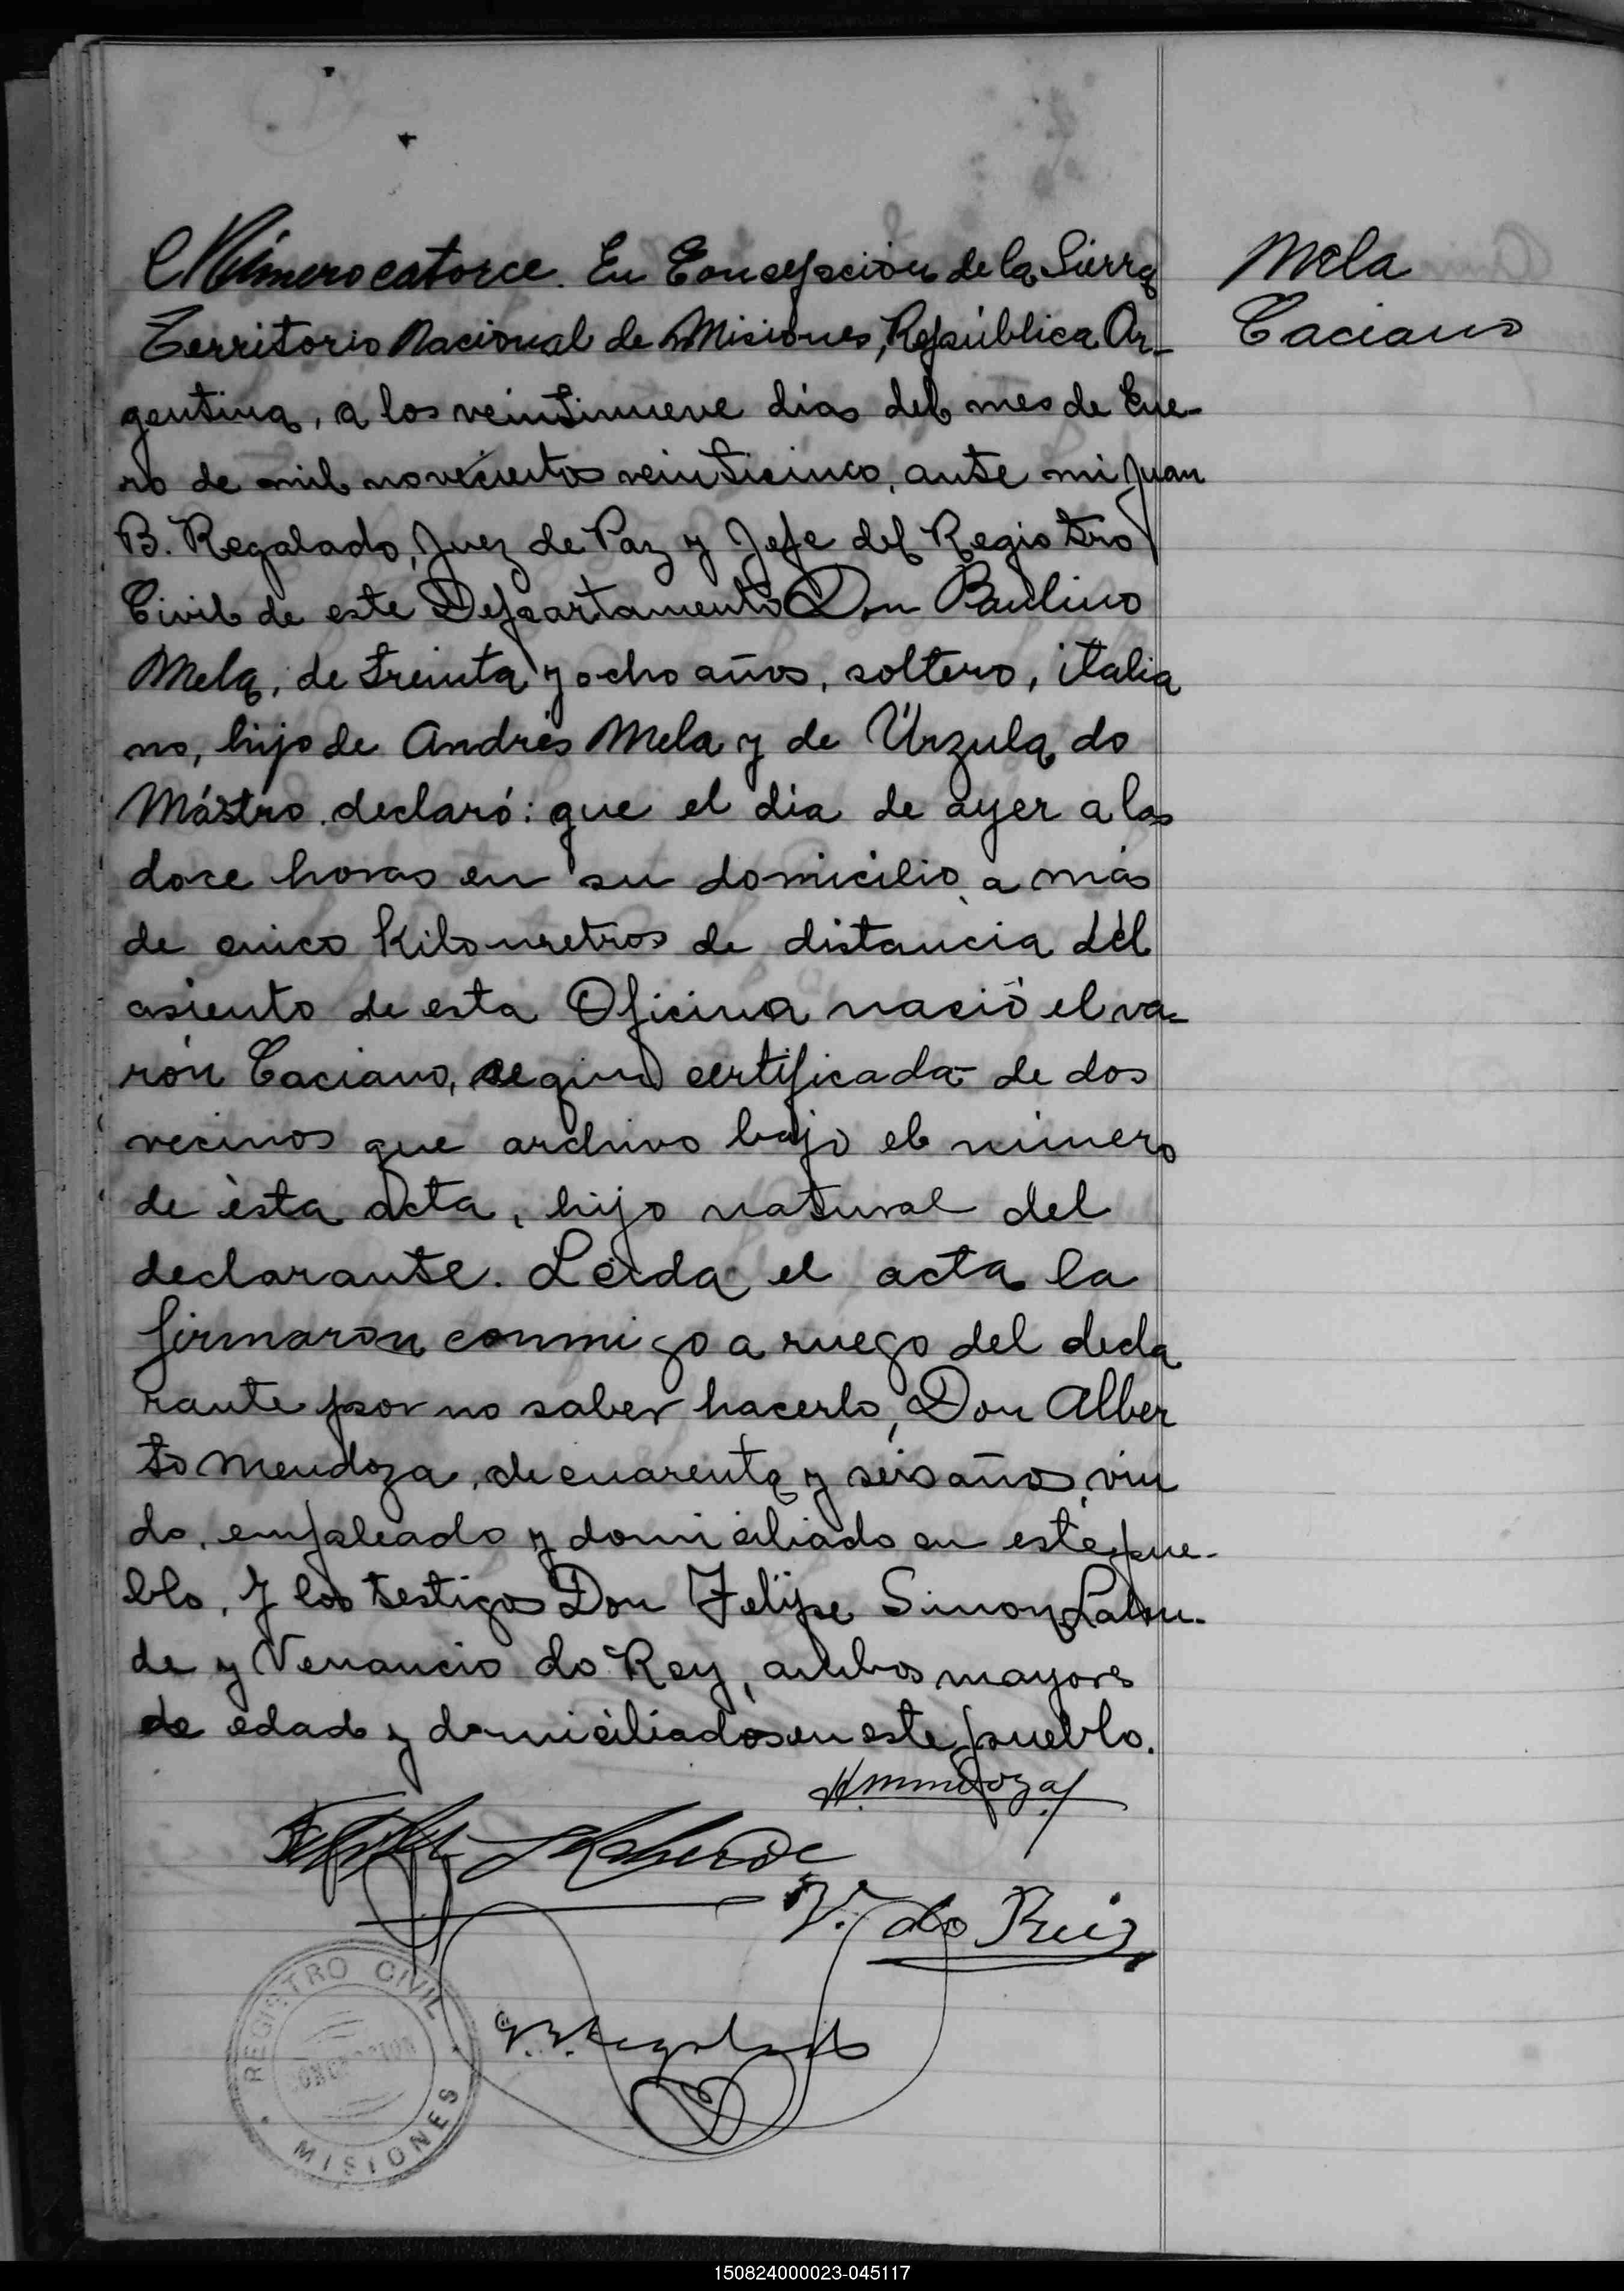 Número catorce. En Concepción de la Sierra
Territorio Nacional de Misiones, República Ar-
gentina, a los veintinueve días del mes de Ene-
ro de mil novecientos veinticinco, ante mi Juan
B. Regalado, Juez de Paz y Jefe del Registro
Civil de este Departamento Don Paulino
Mela, de treinta y ocho años, soltero, italia
no, hijo de Andrés Mela y de Úrzula do
Mástro declaró: que el día de ayer a las
doce horas en su domicilio a más
de cinco Kilometros de distancia del
asiento de esta Oficina nació el va-
rón Caciano, según certificado de dos
vecinos que archivo bajo el número
de ésta acta, hijo natural del
declarante. Leída el acta la
firmaron conmigo a ruego del decla
rante por no saber hacerlo, Don Alber
to Mendoza, de cuarenta y seis años, viu
do, empleado y domiciliado en este pue-
blo, y los testigos Don Felipe Simon
de y Venancio do Rey, ambos mayores
de edad y domiciliados en este pueblo.
Mela
Caciano
V. do Ruiz
REGISTRO CIVIL
CONCEPCION
MISIONES
150824000023-045117